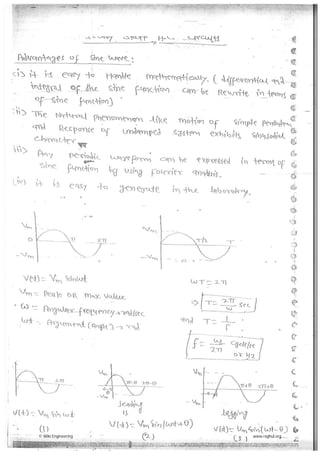 Steady State A.C. Circuits
Advantages of Sine wave:
(i) it is easy to Handle mathematically. ( differential and
integral of the sine function can be Rewrite in terms
of sine function)
(ii) The Natural phenomenom like motion of simple pendulum
and Response of undamped system exhibits sinusoidal
character
(iii) Any periodic waveform can be expressed in terms of
sine function by using fourier
(iv) it is easy to generate in the labarotry.
Vm
0
π
2π
-Vm
Vm
T/2
T
-Vm
V(t) = Vm sinωt
Vm = Peak OR max value
ω = Angular frequency → rad/sec
ωt = Argument (Angle) → rad
ωT = 2π
⇒ T = 2π/ω sec
and T = 1/f
f = ω/2π cycle/sec
or Hz
Vm
π
2π
V(t) = Vm sinωt
(1)
Vm
π-θ
2π-θ
leading
V(t) = Vm sin(ωt+θ)
(2)
Vm
π+θ
2π+θ
lagging
V(t) = Vm sin(ωt-θ)
(3)
© Wiki Engineering
www.raghul.org